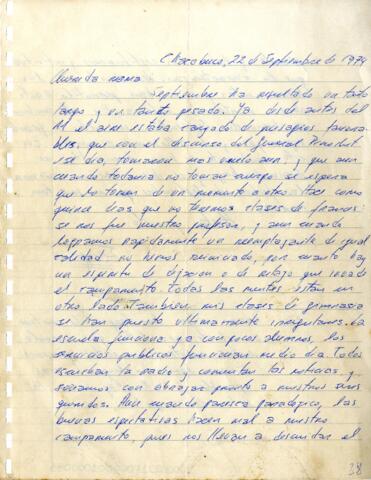 Chacabuco, 22 de Septiembre de 1974
Querida mamá
Septiembre ha resultado un tanto
largo y un tanto pesado. Ya desde antes del
11 el aire estaba cargado de presagios favora-
bles, que con el discurso del General Pinochet
ese día, tomaron más vuelo aún, y que aun
cuando todavía no toman cuerpo se espera
que lo tomen de un momento a otro. Hace como
quince días que no tenemos clases de francés:
se nos fue nuestro profesor, y aun cuando
logramos rápidamente un reemplazante de igual
calidad no hemos reiniciado, por cuanto hay
un espíritu de dejación o de relajo que invade
el campamento. Todas las mentes están en
otro lado. También mis clases de gimnasia
se han puesto ultimamente irregulares. La
escuela funciona ya con pocos alumnos, los
servicios públicos funcionan medio día. Todos
escuchan la radio y comentan las noticias y
soñamos con abrazar pronto a nuestros seres
queridos. Aun cuando parezca paradójico, las
buenas espectativas hacen mal a nuestro
campamento, pues nos llevan a descuidar el
38